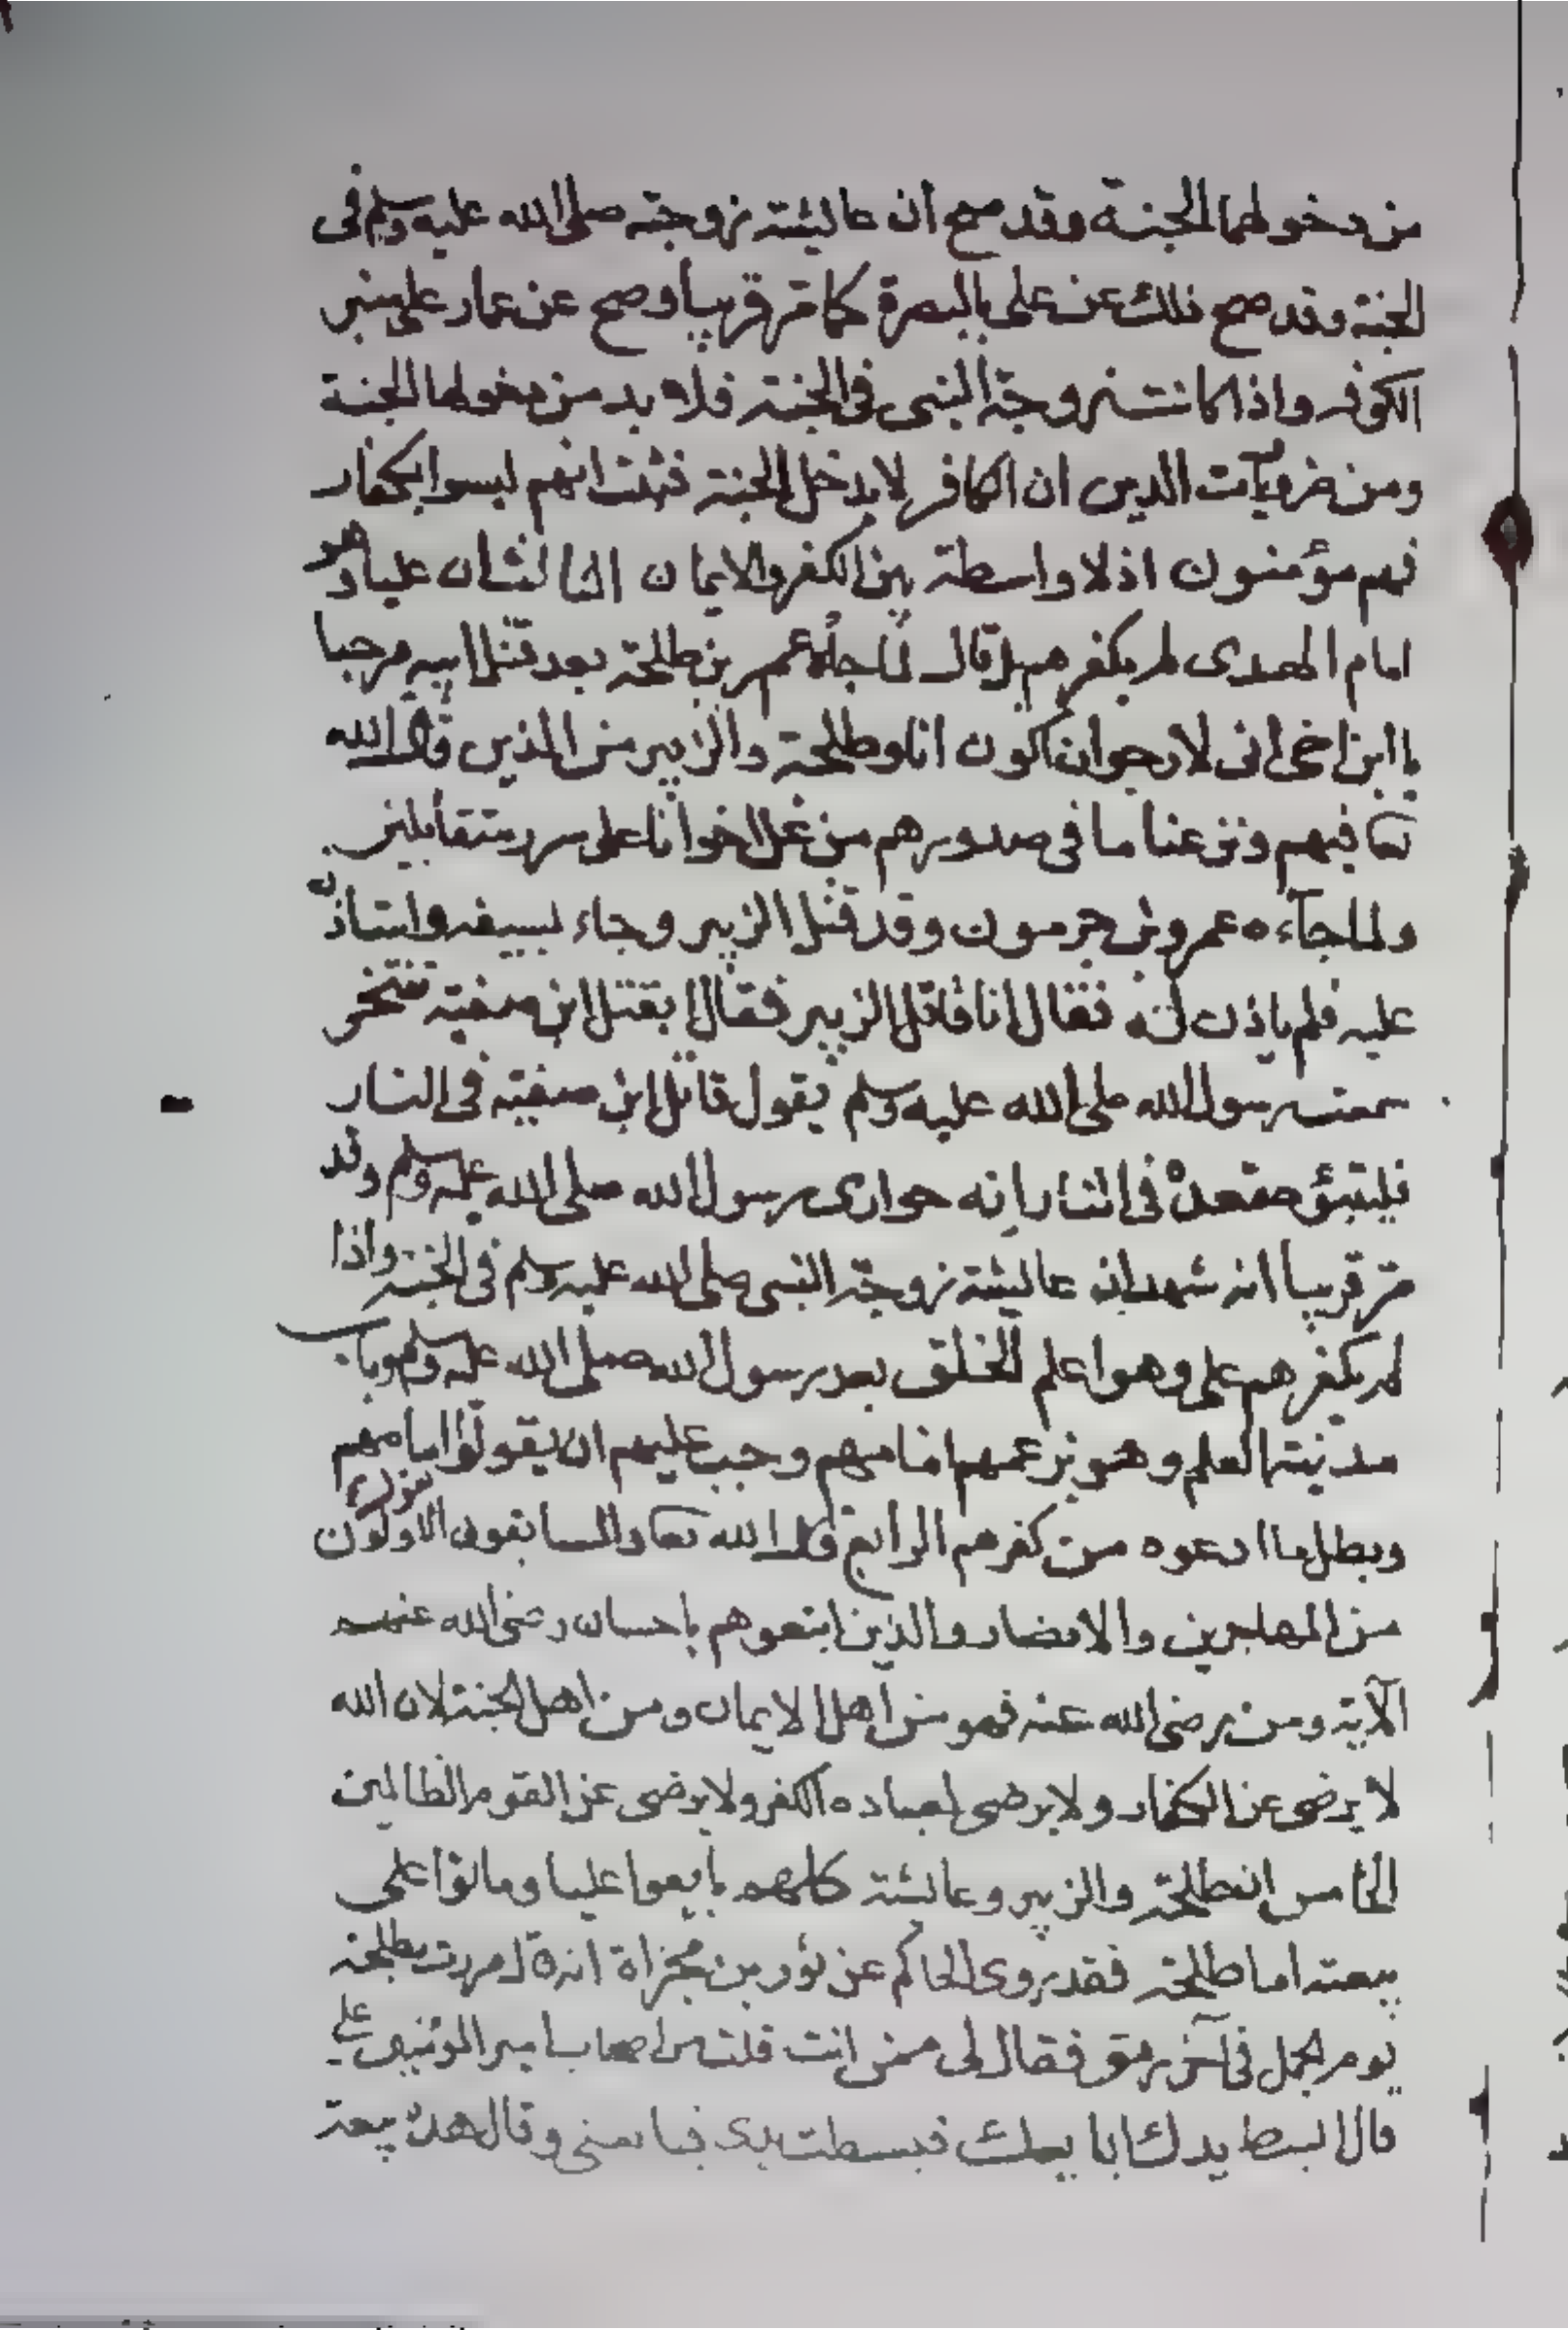 من دخولها الجنة وقد صح أن عائشة زوجته صلى الله عليه وسلم في
الجنة وقد صح ذلك عن علي بالبصرة كما مر قريبا وصح عن عمار على منبر
الكوفه واذا كانت زوجة النبي في الجنة فلا بد من دخولها الجنة
ومن ضروريات الدين ان الكافر لا يدخل الجنة فثبت انهم ليسوا بكفار
فهم مؤمنون اذ لا واسطة بين الكفر والايمان الثالث ان عليا وهو
امام الهدى لم يكفرهم بل قال لما جاءه عمر بن طلحة بعد قتل ابيه مرحبا
يا ابن اخي اني لارجو ان اكون انا وطلحة والزبير من الذين قال الله
تعا فيهم ونزعنا ما في صدورهم من غل اخوانا على سرر متقابلين
ولما جآءه عمرو بن جرموز وقد قتل الزبير وجاء بسيفه واستاذن
عليه فلم ياذن له فقال انا قاتل الزبير فقال ابقتل ابن صفية تفتخر
سمعت رسول الله صلى الله عليه وسلم يقول قاتل ابن صفية في النار
فليتبؤ مقعده في النار انه حوارى رسول الله صلى الله عليه وسلم وقد
مر قريبا انه شهد ان عائشة زوجة النبي صلى الله عليه وسلم في الجنة واذا
لم يكفرهم علي وهو اعلم الخلق بعد رسول الله صلى الله عليه وسلم وهو باب
مدينة العلم وهو بزعمهم امامهم وجب عليهم ان يقولوا امامهم
وبطل ما ادعوه من كفرهم الرابع قال الله تعا والسابقون الاولون
من المهاجرين والانصار والذين اتبعوهم باحسان رضي الله عنهم
الآية ومن رضي الله عنه فهو من اهل الايمان ومن اهل الجنة لان الله
لا يرضى عن الكفار ولا يرضى لعباده الكفر ولا يرضى عن القوم الظالمين
الخامس ان طلحة والزبير وعائشة كلهم بايعوا عليا وماتوا على
بيعته اما طلحة فقد روى الحاكم عن ثور بن مجزاة انه قال مررت بطلحة
يوم الجمل في آخر رمق فقال لي ممن انت قلت من اصحاب امير المؤمنين علي
قال ابسط يدك ابايعك فبسطت يدى فبايعني وقال هذه بيعة